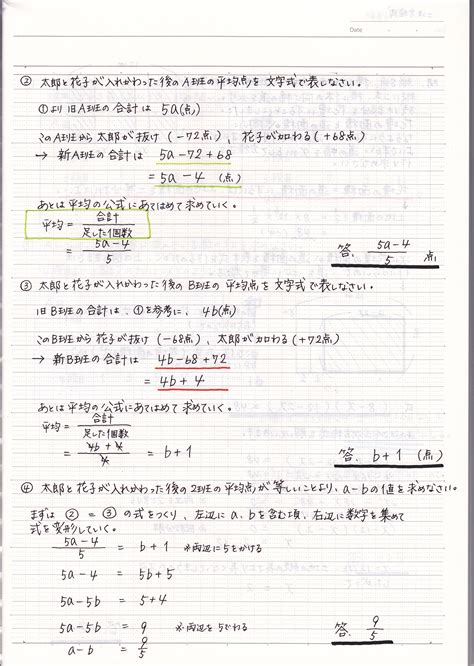 Date
② 太郎と花子が入れかわった後のA班の平均点を文字式で表しなさい。
①より旧A班の合計は 5a(点)
このA班から太郎が抜け(-72点)、花子が加わる(+68点)
→ 新A班の合計は 5a-72+68
= 5a-4 (点)
あとは平均の公式にあてはめて求めていく。
平均 = 合計/足した個数
= 5a-4/5
答. 5a-4/5 点
③ 太郎と花子が入れかわった後のB班の平均点を文字式で表しなさい。
旧B班の合計は、①を参考に、4b(点)
このB班から花子が抜け(-68点)、太郎が加わる(+72点)
→ 新B班の合計は 4b-68+72
= 4b+4
あとは平均の公式にあてはめて求めていく。
平均 = 合計/足した個数
= 4b+4/4 = b+1
答. b+1 (点)
④ 太郎と花子が入れかわった後の2班の平均点が等しいことより、a-bの値を求めなさい。
まずは ② = ③ の式をつくり、左辺に a、bを含む項、右辺に数字を集めて
式を変形していく。
5a-4/5 = b+1 ※両辺に5をかける
5a-4 = 5b+5
5a-5b = 5+4
5a-5b = 9 ※両辺を5でわる
a-b = 9/5
答. 9/5